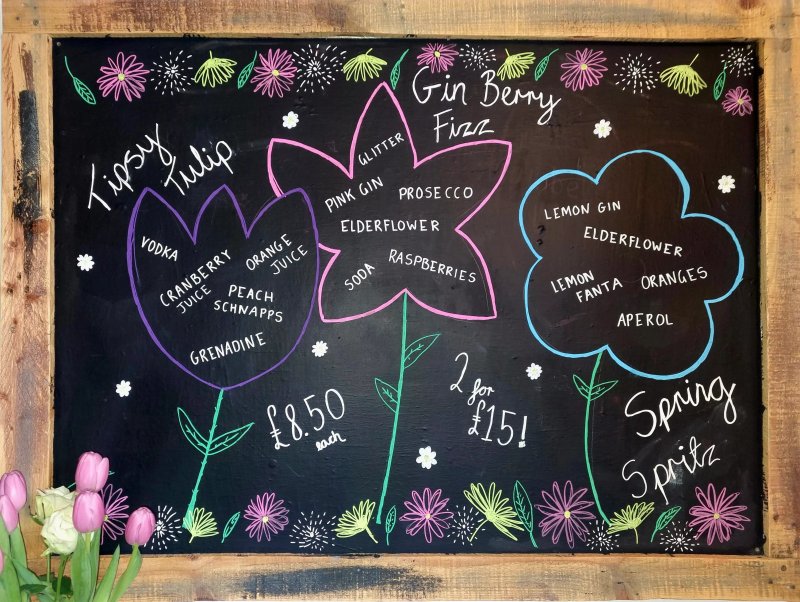 Tipsy
Tulip
VODKA
CRANBERRY
JUICE
ORANGE
JUICE
PEACH
SCHNAPPS
GRENADINE
Gin Berry
Fizz
GLITTER
PINK GIN
PROSECCO
ELDERFLOWER
SODA
RASPBERRIES
LEMON GIN
ELDERFLOWER
LEMON
FANTA
ORANGES
APEROL
Spring
Spritz
£8.50
each
2 for
£15!